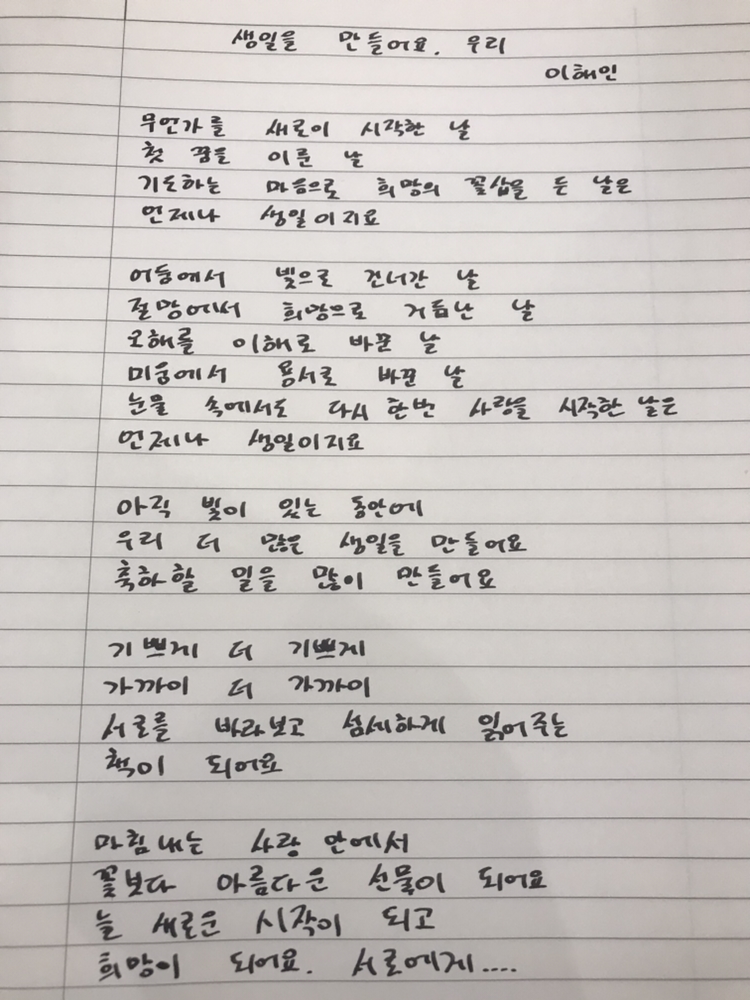 생일을 만들어요. 우리
이해인
무언가를 새로이 시작한 날
첫 꿈을 이룬 날
기도하는 마음으로 희망의 꽃삽을 든 날은
언제나 생일이지요
어둠에서 빛으로 건너간 날
절망에서 희망으로 거듭난 날
오해를 이해로 바꾼 날
미움에서 용서로 바꾼 날
눈물 속에서도 다시 한번 사랑을 시작한 날은
언제나 생일이지요
아직 빛이 있는 동안에
우리 더 많은 생일을 만들어요
축하할 일을 많이 만들어요
기쁘게 더 기쁘게
가까이 더 가까이
서로를 바라보고 섬세하게 읽어주는
책이 되어요
마침내는 사랑 안에서
꽃보다 아름다운 선물이 되어요
늘 새로운 시작이 되고
희망이 되어요. 서로에게....